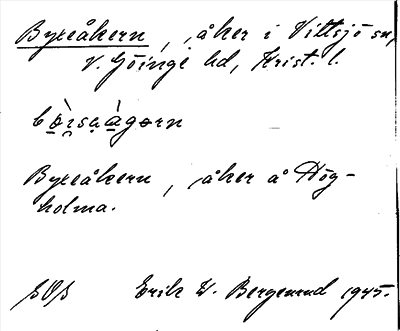 Byreåkern, åker i Vittsjö sn,
V. Göinge hd, Krist. l.
Byreåkern, åker å Hög-
holma.
SOS Erik W. Bergenrud 1945.